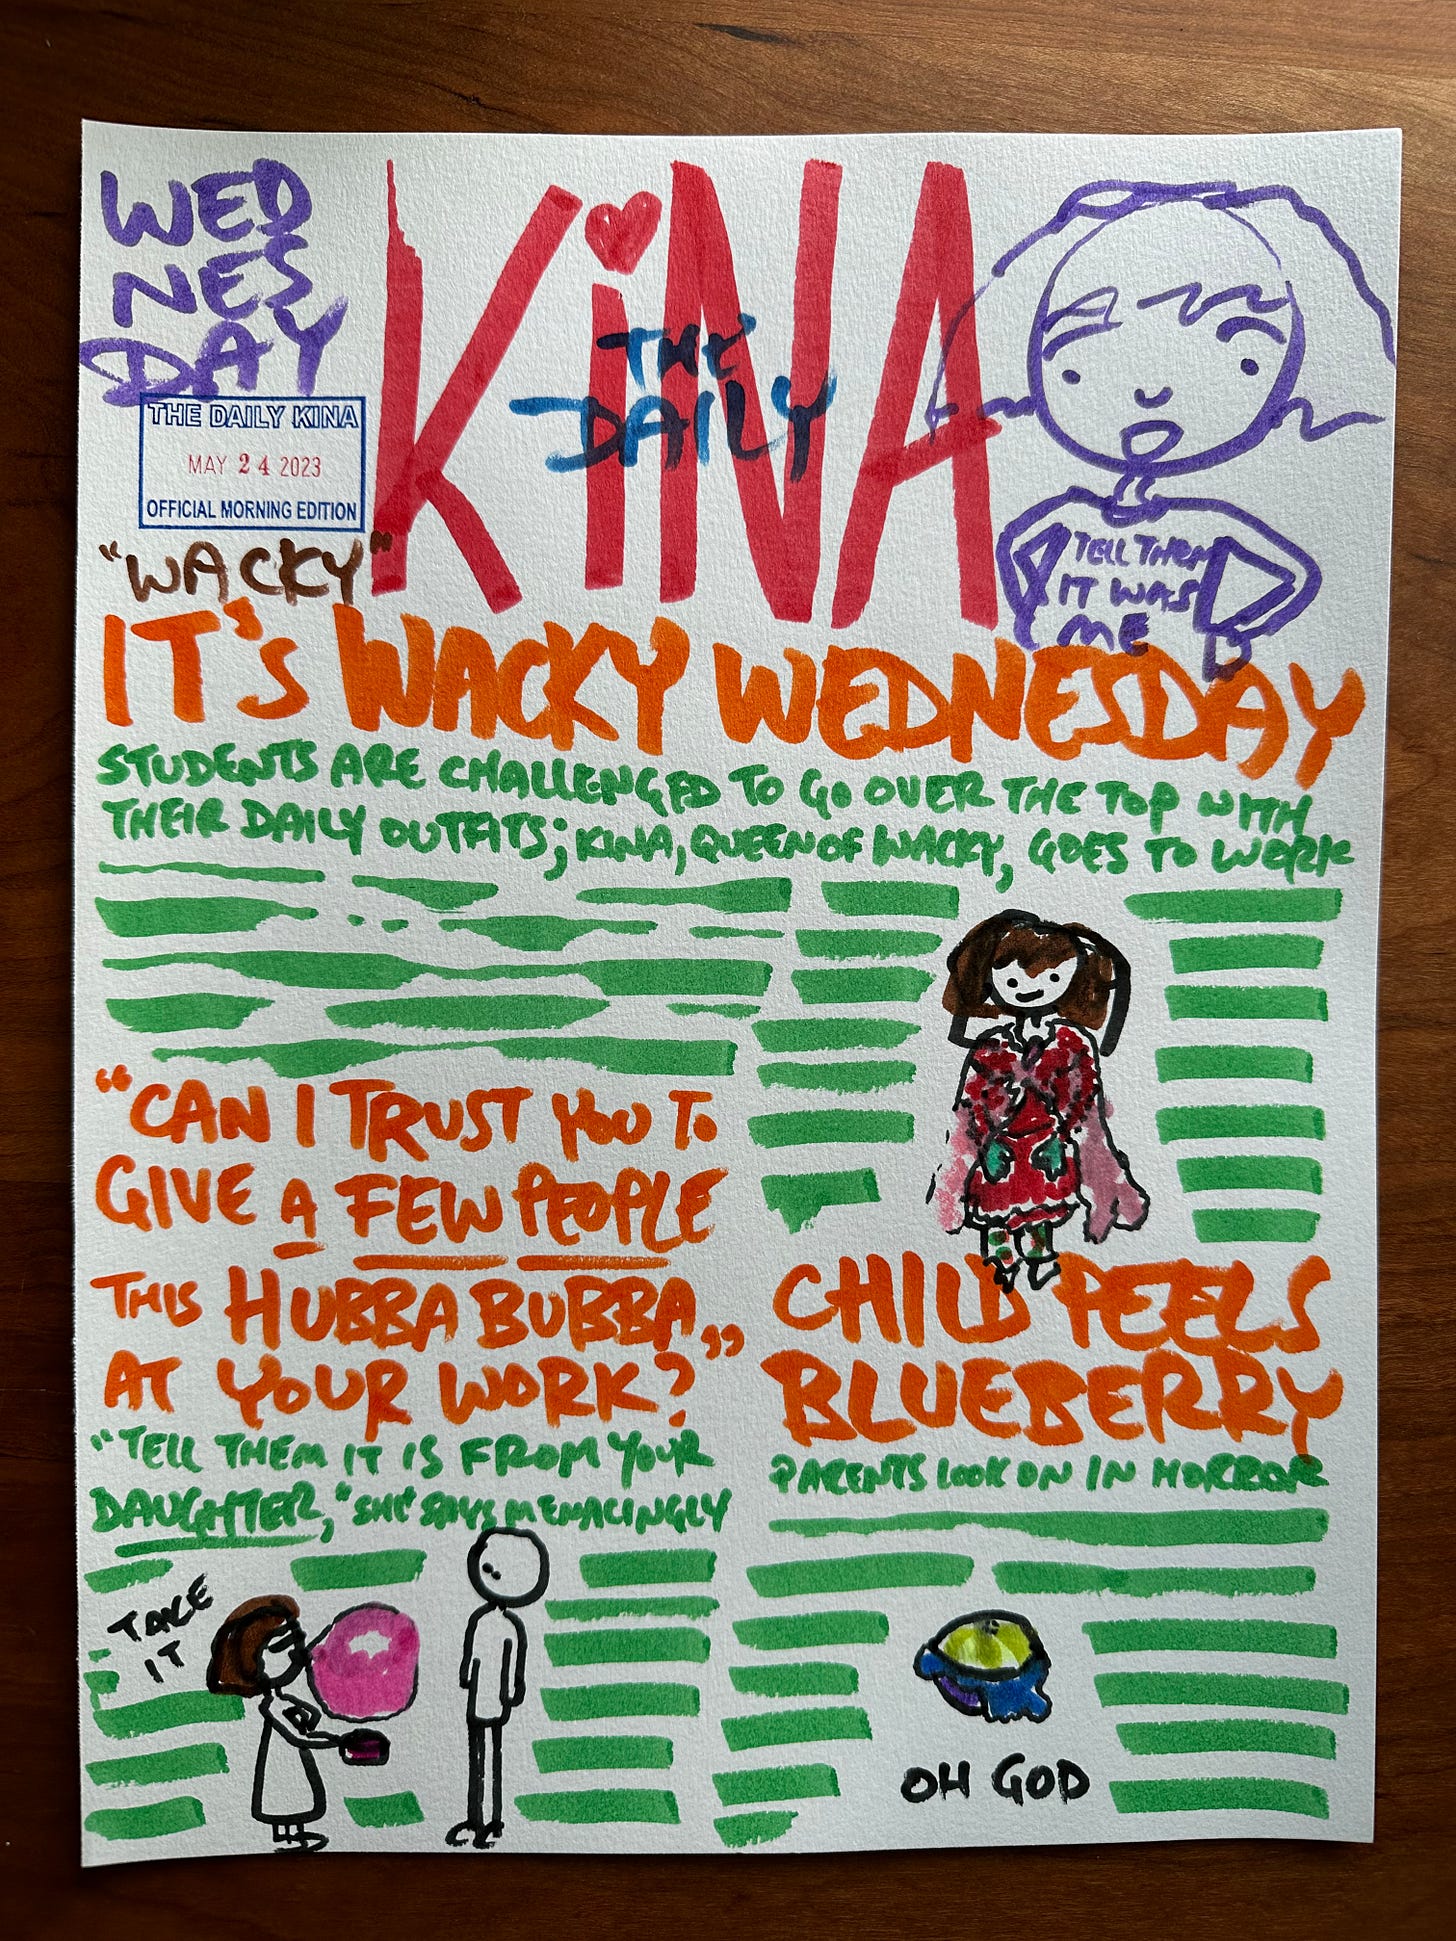 WED
NES
DAY
THE DAILY KINA
MAY 24 2023
OFFICIAL MORNING EDITION
KiNA
THE
DAILY
TELL THEM
IT WAS
ME
"WACKY"
IT'S WACKY WEDNESDAY
STUDENTS ARE CHALLENGED TO GO OVER THE TOP WITH
THEIR DAILY OUTFITS; KINA, QUEEN OF WACKY, GOES TO WORK
"CAN I TRUST YOU TO
GIVE A FEW PEOPLE
THIS HUBBA BUBBA,"
AT YOUR WORK?
"TELL THEM IT IS FROM YOUR
DAUGHTER," SHE SAYS MENACINGLY
TAKE
IT
CHILD PEELS
BLUEBERRY
PARENTS LOOK ON IN HORROR
OH GOD